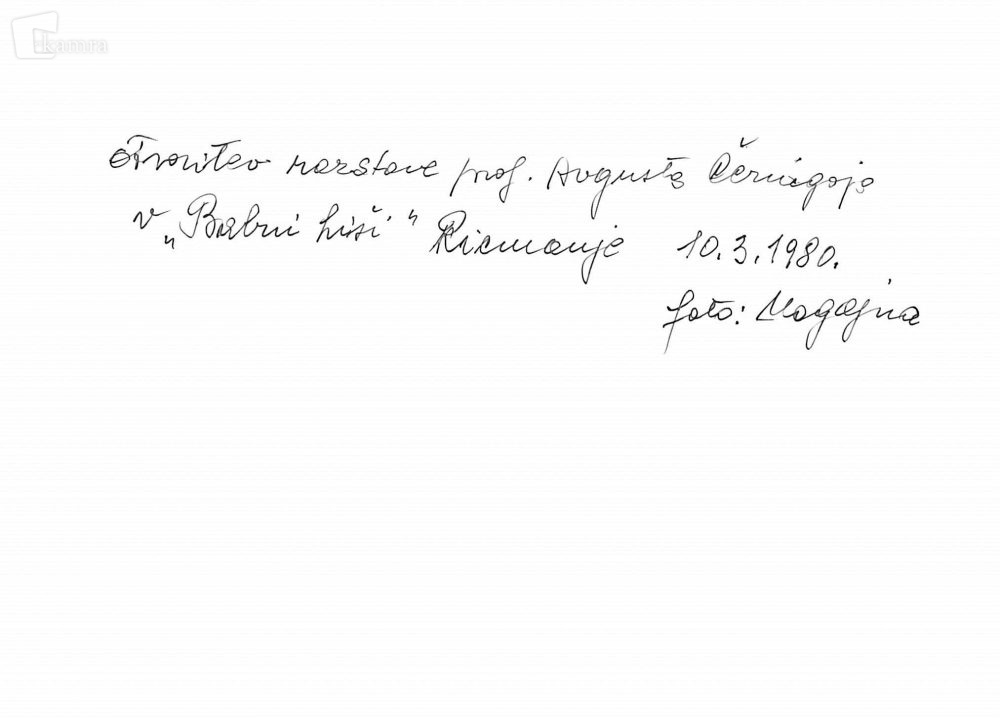 kamra
otvoritev razstave prof. Avgusta Černigoja
v „Babni hiši" Ricmanje 10.3.1980.
foto: Magajna